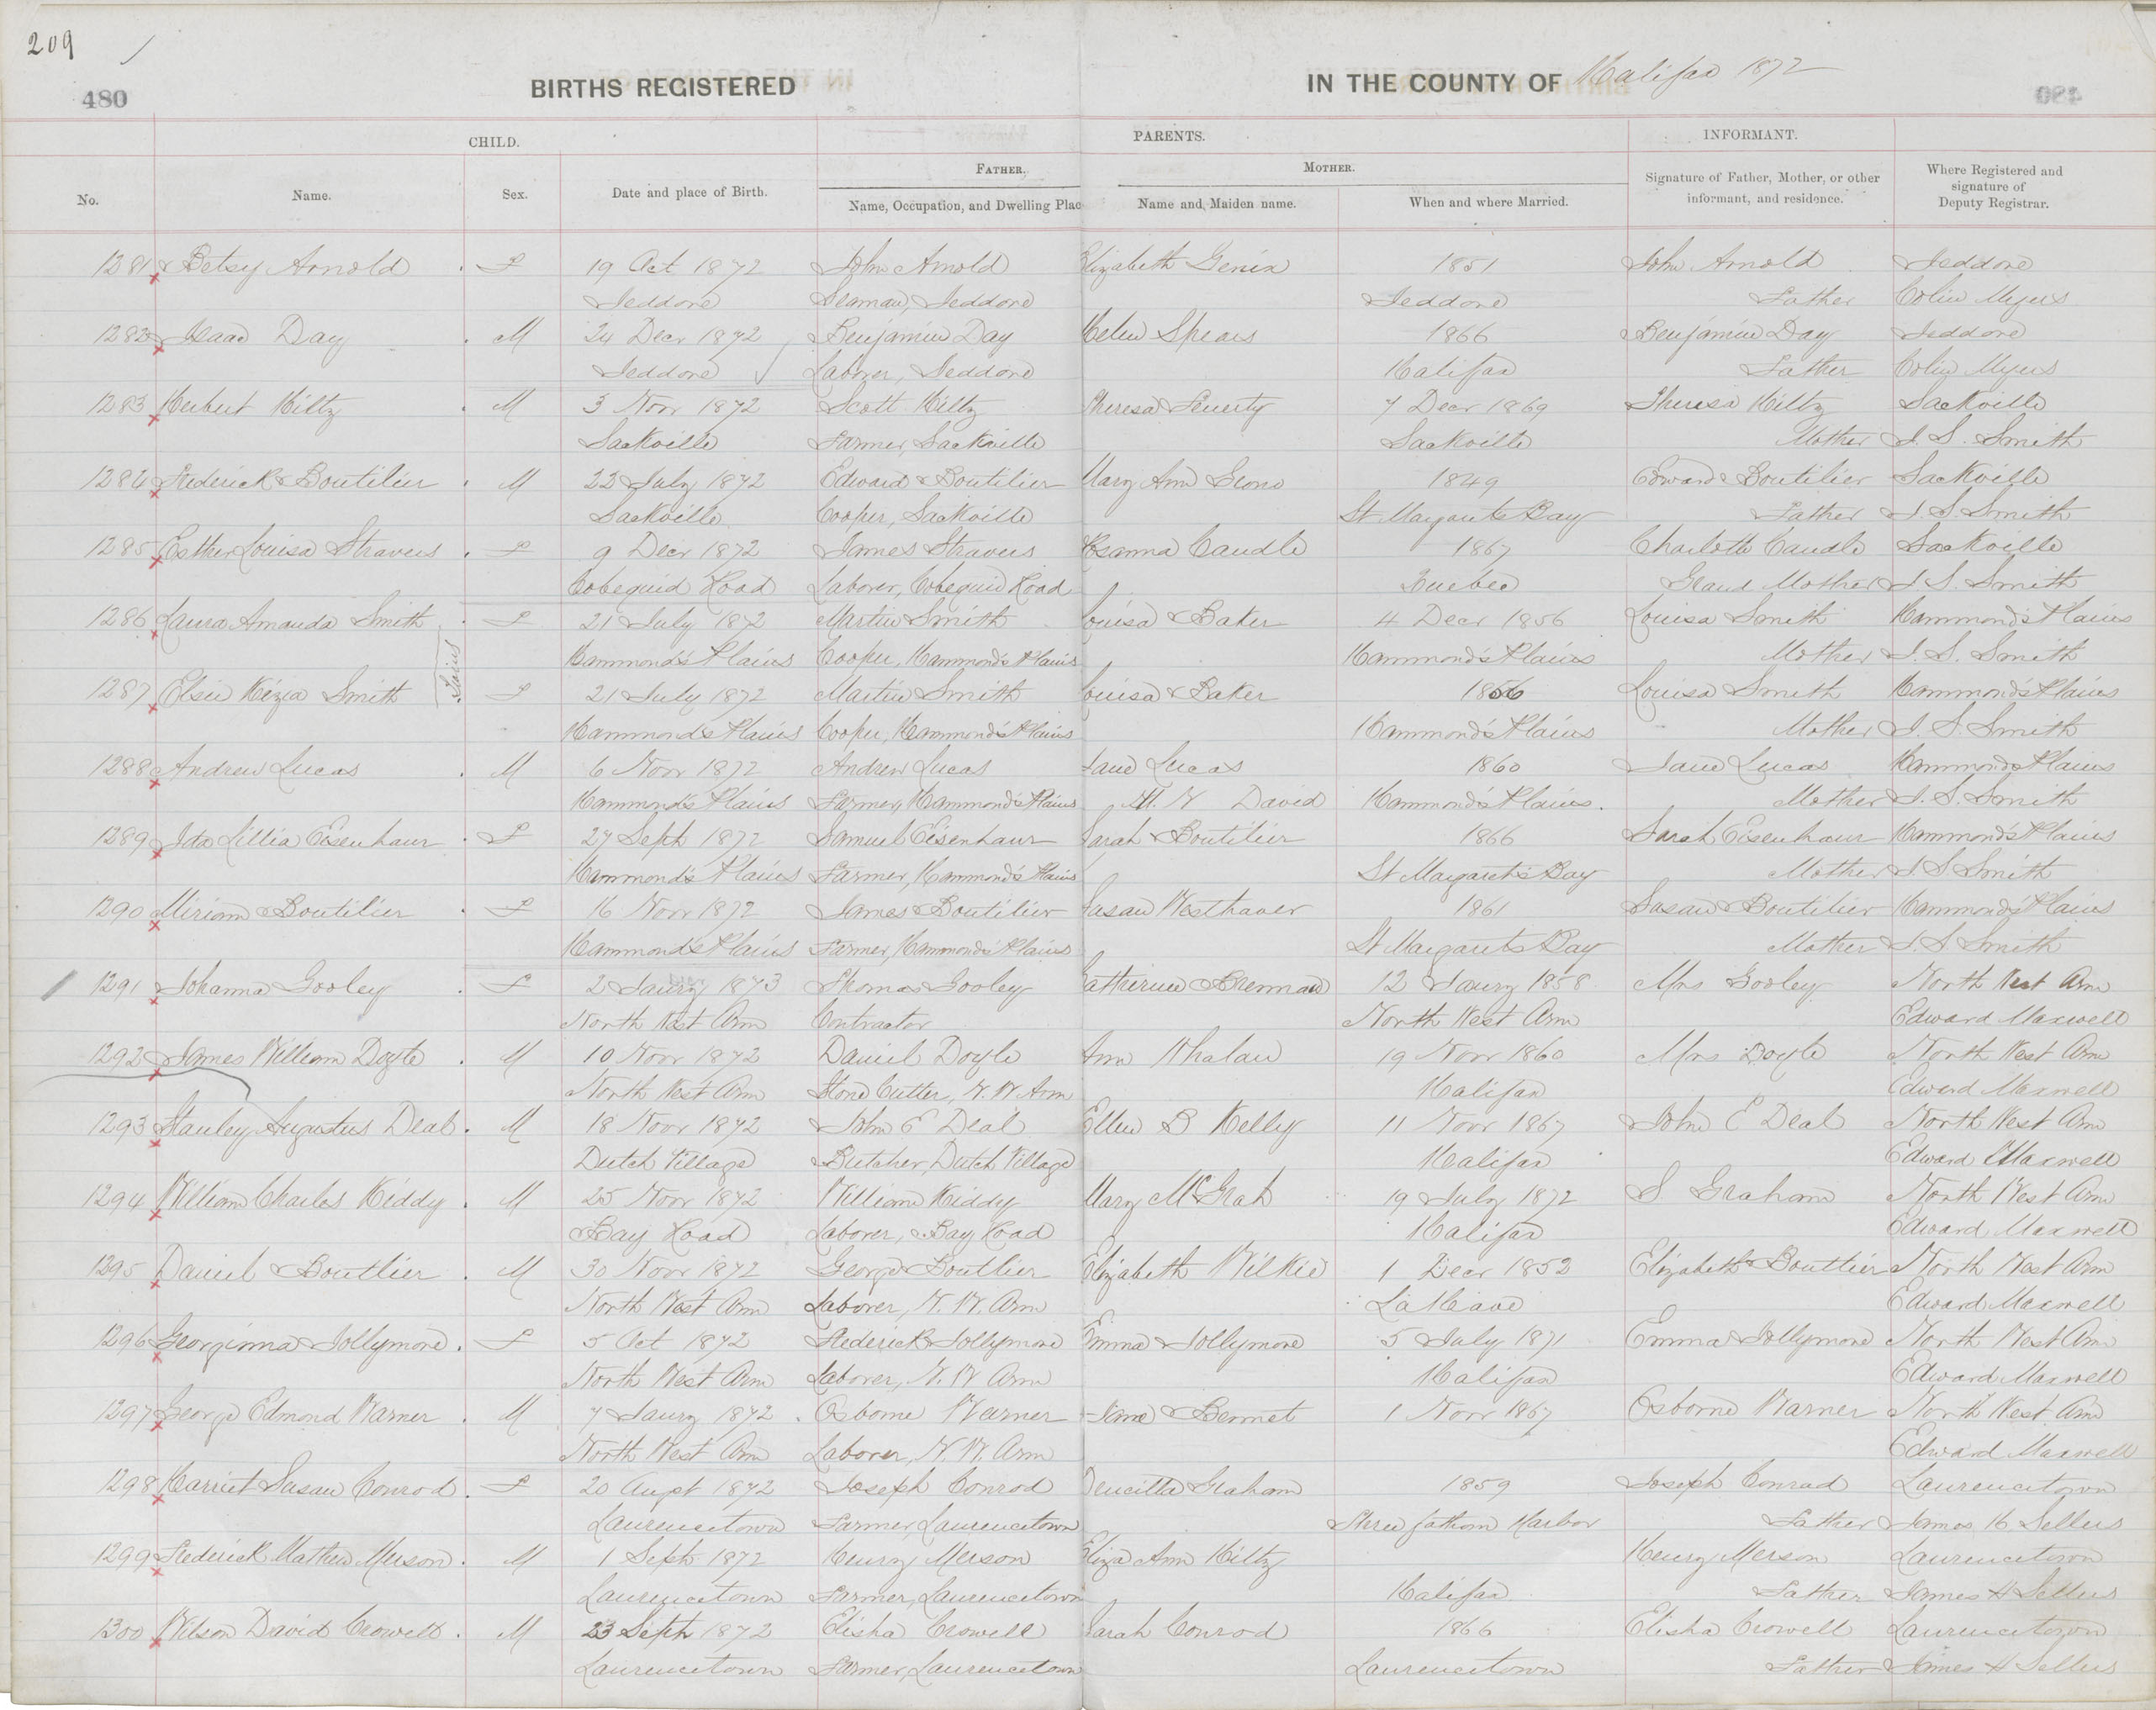 209
480
BIRTHS REGISTERED IN THE COUNTY OF Halifax 1872
CHILD. PARENTS. INFORMANT.
No. Name. Sex. Date and place of Birth. FATHER. Name, Occupation, and Dwelling Plac MOTHER. Name and Maiden name. When and where Married. Signature of Father, Mother, or other informant, and residence. Where Registered and signature of Deputy Registrar.
1281 Betsy Arnold F 19 Oct 1872 John Arnold Elizabeth 1851 John Arnold Jeddore
Jeddore Seaman, Jeddore Jeddore Father Colin Myers
1282 Isaac Day M 24 Decr 1872 Benjamin Day Helen Spears 1866 Benjamin Day Jeddore
Jeddore Laborer, Jeddore Halifax Father Colin Myers
1283 Herbert Hiltz M 3 Novr 1872 Scott Hiltz Theresa Fenerty 7 Decr 1869 Theresa Hiltz Sackville
Sackville Farmer, Sackville Sackville Mother J. S. Smith
1284 Frederick Boutilier M 22 July 1872 Edward Boutilier Mary Ann 1849 Edward Boutilier Sackville
Sackville Cooper, Sackville St Margarets Bay Father J. S. Smith
1285 Esther Louisa Stravens F 9 Decr 1872 James Stravens Rosanna Caudle 1867 Charlotte Caudle Sackville
Cobequid Road Laborer, Cobequid Road Quebec Grand Mother J. S. Smith
1286 Laura Amanda Smith F 21 July 1872 Martin Smith Louisa Baker 4 Decr 1856 Louisa Smith Hammond's Plains
Twins
Hammond's Plains Cooper, Hammond's Plains Hammond's Plains Mother J. S. Smith
1287 Elsie Kezia Smith F 21 July 1872 Martin Smith Louisa Baker 1856 Louisa Smith Hammond's Plains
Hammond's Plains Cooper, Hammond's Plains Hammond's Plains Mother J. S. Smith
1288 Andrew Lucas M 6 Novr 1872 Andrew Lucas Jane Lucas 1860 Jane Lucas Hammonds Plains
Hammonds Plains Farmer, Hammond's Plains M. N David Hammond's Plains. Mother J. S. Smith
1289 Ida Lillia Eisenhaur F 27 Septr 1872 Samuel Eisenhaur Sarah Boutilier 1866 Sarah Eisenhaur Hammond's Plains
Hammond's Plains Farmer, Hammond's Plains St Margaret's Bay Mother J. S. Smith
1290 Miriam Boutilier F 16 Novr 1872 James Boutilier Susan Westhaver 1861 Susan Boutilier Hammond's Plains
Hammond's Plains Farmer, Hammond's Plains St Margarets Bay Mother J. S. Smith
1291 Johanna Gooley F 2 Jaury 1873 Thomas Gooley Catherine Brennan 12 Jaury 1858 Mrs Gooley North West Arm
North West Arm Contractor North West Arm Edward Maxwell
1292 James William Doyle M 10 Novr 1872 Daniel Doyle Ann Whalan 19 Novr 1860 Mrs Doyle North West Arm
North West Arm Stone Cutter, N. W Arm Halifax Edward Maxwell
1293 Stanley Augustus Deal M 18 Novr 1872 John E Deal Ellen B Kelly 11 Novr 1867 John E Deal North West Arm
Dutch Village Butcher, Dutch Village Halifax Edward Maxwell
1294 William Charles Kiddy M 25 Novr 1872 William Kiddy Mary McGrah 19 July 1872 S Graham North West Arm
Bay Road Laborer, Bay Road Halifax Edward Maxwell
1295 Daniel Boutlier M 30 Novr 1872 George Boutlier Elizabeth Wilkie 1 Decr 1852 Elizabeth Bouttier North West Arm
North West Arm Laborer, N. W. Arm LaHeave Edward Maxwell
1296 Georginna Jollymore F 5 Oct 1872 Frederick Jollymore Emma Jollymore 5 July 1871 Emma Jollymore North West Arm
North West Arm Laborer, N. W Arm Halifax Edward Maxwell
1297 George Edmond Warner M 7 Jaury 1872 Osborne Warner Jane Bennet 1 Novr 1867 Osborne Warner North West Arm
North West Arm Laborer, N. W. Arm Edward Maxwell
1298 Harriet Susan Conrod F 20 Augst 1872 Joseph Conrod Graham 1859 Joseph Conrad Laurencetown
Laurencetown Farmer, Laurencetown Three fathom Harbor Father James H Sellers
1299 Frederick Mathew Merson M 1 Septr 1872 Henry Merson Eliza Ann Hiltz Henry Merson Laurencetown
Laurencetown Farmer, Laurencetown Halifax Father James H Sellers
1300 Wilson David Crowell M 23 Septr 1872 Elisha Crowell Sarah Conrod 1866 Elisha Crowell Laurencetown
Laurencetown Farmer, Laurencetown Laurencetown Father James H Sellers